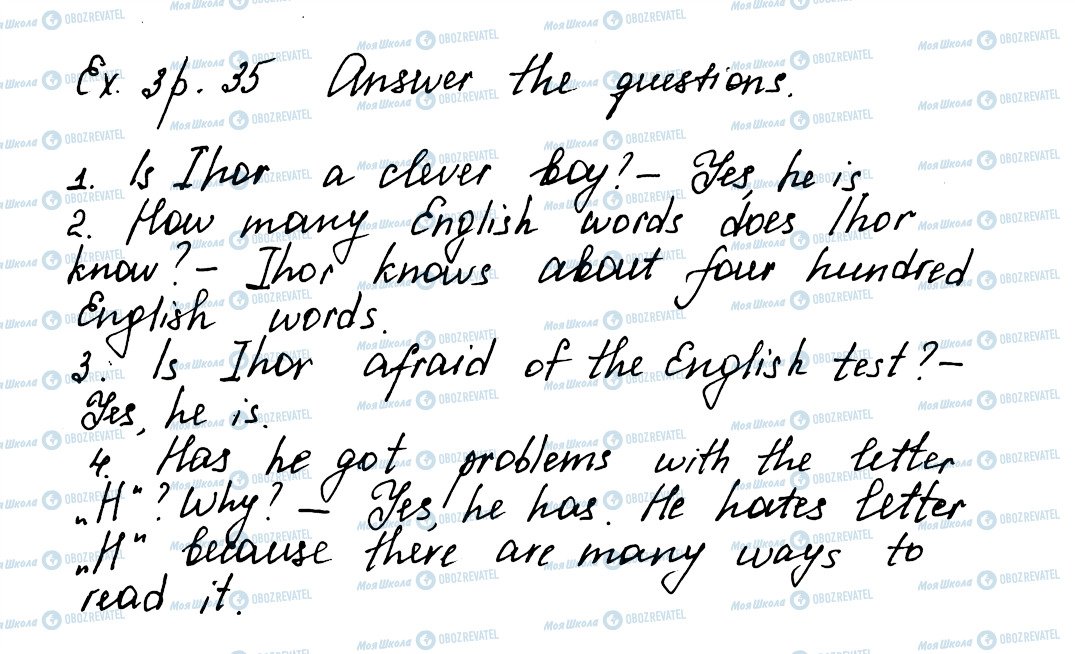 Ex. 3 p. 35 Answer the questions.
1. Is Ihor a clever boy? – Yes, he is.
2. How many English words does Ihor
know? – Ihor knows about four hundred
English words.
3. Is Ihor afraid of the English test? –
Yes, he is.
4. Has he got problems with the letter
„H"? Why? – Yes, he has. He hates letter
„H" because there are many ways to
read it.